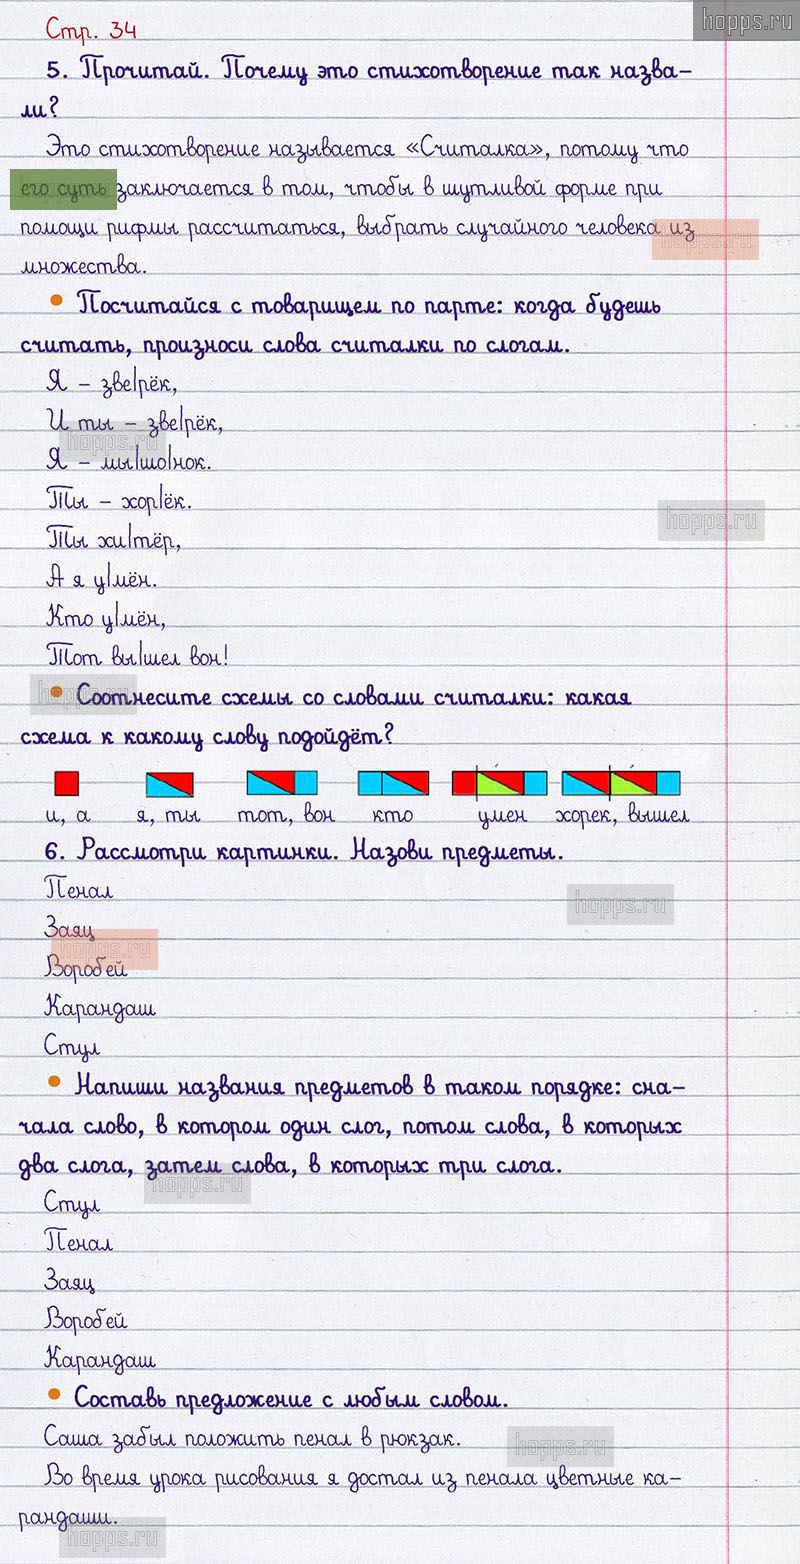 hopps.ru
Стр. 34
5. Прочитай. Почему это стихотворение так назва-
ли?
Это стихотворение называется «Считалка», потому что
его суть заключается в том, чтобы в шутливой форме при
помощи рифмы рассчитаться, выбрать случайного человека из
hopps.ru
множества.
• Посчитайся с товарищем по парте: когда будешь
считать, произноси слова считалки по слогам.
Я – зве|рёк,
И ты – зве|рёк,
hopps.ru
Я – мы|шо|нок.
Ты – хор|ёк.
hopps.ru
Ты хи|тёр,
А я у|мён.
Кто у|мён,
Тот вы|шел вон!
hopps.ru
• Соотнесите схемы со словами считалки: какая
схема к какому слову подойдёт?
и, а я, ты тот, вон кто умен хорек, вышел
6. Рассмотри картинки. Назови предметы.
Пенал
hopps.ru
Заяц
hopps.ru
Воробей
Карандаш
Стул
• Напиши названия предметов в таком порядке: сна-
чала слово, в котором один слог, потом слова, в которых
два слога, затем слова, в которых три слога.
hopps.ru
Стул
Пенал
Заяц
Воробей
Карандаш
• Составь предложение с любым словом.
Саша забыл положить пенал в рюкзак.
hopps.ru
Во время урока рисования я достал из пенала цветные ка-
рандаши.
hopps.ru